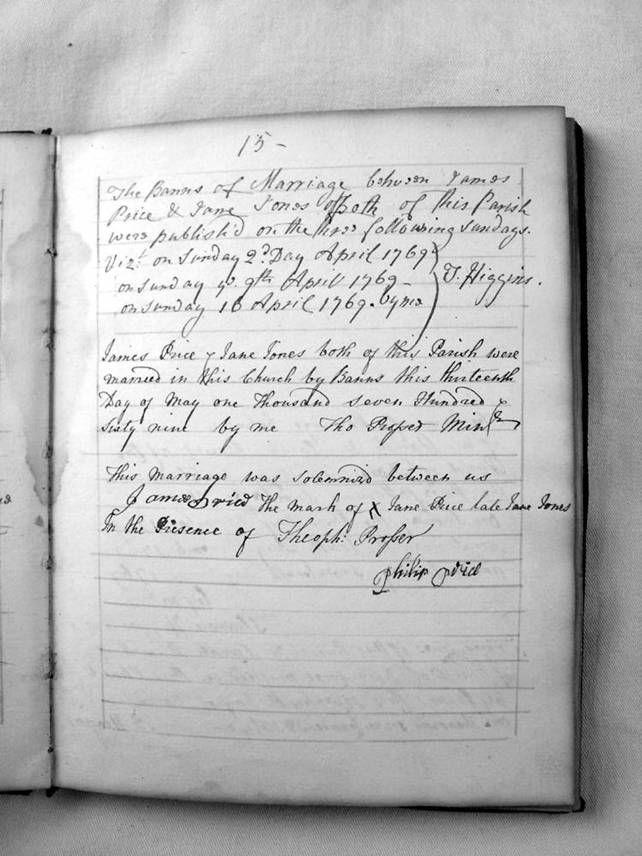 15 -
The Banns of Marriage between James
Price & Jane Jones both of this Parish
were publish'd on the three following Sundays.
Vizt. on Sunday 2d. Day April 1769
on Sunday ye. 9th April 1769 -
on Sunday 16 April 1769. by me
J. Higgins.
James Price & Jane Jones both of this Parish were
married in this Church by Banns this thirteenth
Day of May one Thousand seven Hundred &
sixty nine by me Tho Prosser Minr
This Marriage was solemnizd between us
James Price The mark of X Jane Price late Jane Jones
In the Presence of Theoph: Prosser
Philip Price